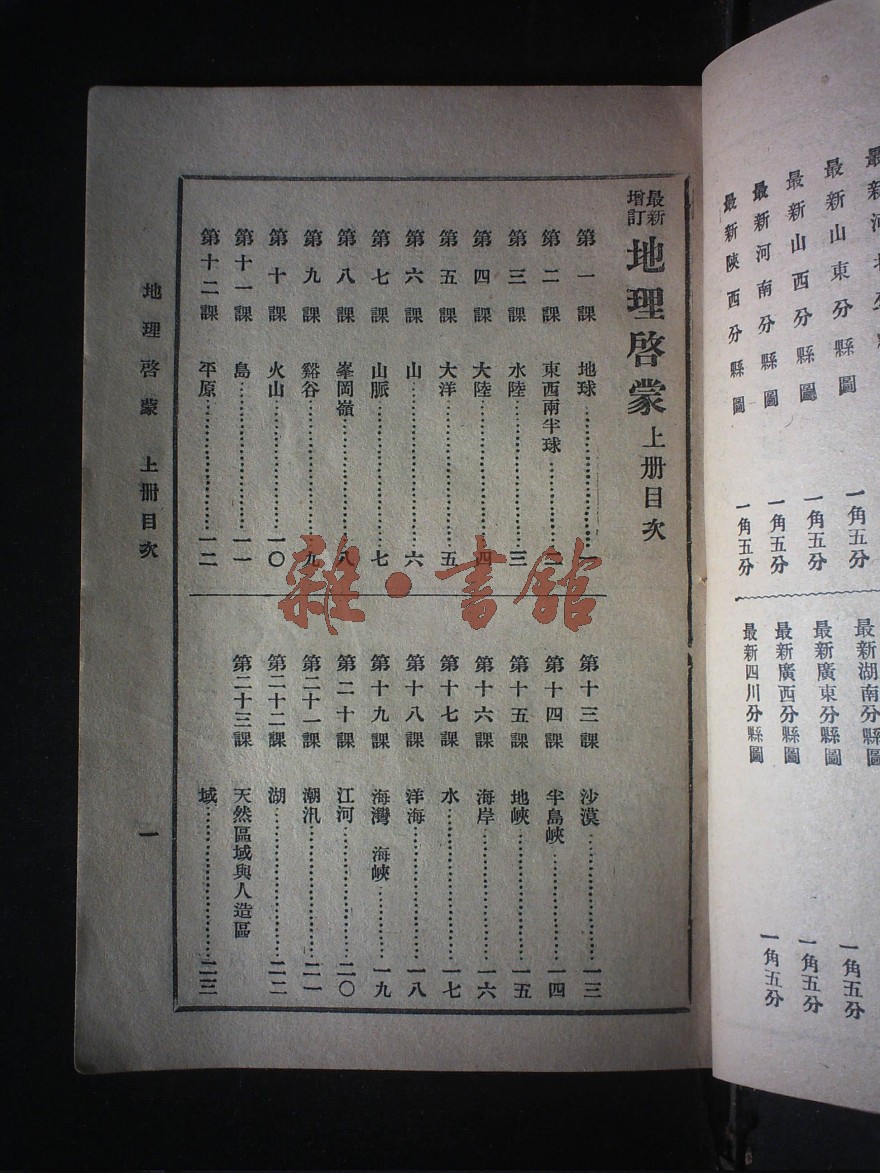 最新增訂 地理啓蒙 上册目次
第一課 地球
第二課 東西兩半球 二
第三課 水陸 三
第四課 大陸 四
第五課 大洋 五
第六課 山 六
第七課 山脈 七
第八課 峯岡嶺 八
第九課 谿谷 九
第十課 火山 一〇
第十一課 島 一一
第十二課 平原 一二
第十三課 沙漠 一三
第十四課 半島峽 一四
第十五課 地峽 一五
第十六課 海岸 一六
第十七課 水 一七
第十八課 洋海 一八
第十九課 海灣 海峽 一九
第二十課 江河 二〇
第二十一課 潮汛 二一
第二十二課 湖 二二
第二十三課 天然區域與人造區
域 二三
地理啓蒙 上册目次 一
雜·書館
最新山東分縣圖 一角五分
最新山西分縣圖 一角五分
最新河南分縣圖 一角五分
最新陝西分縣圖 一角五分
最新湖南分縣圖
最新廣東分縣圖 一角五分
最新廣西分縣圖 一角五分
最新四川分縣圖 一角五分